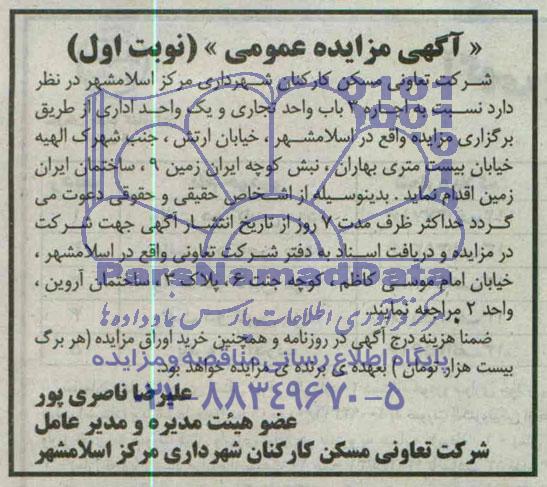 « آگهی مزایده عمومی » (نوبت اول)
شرکت تعاونی مسکن کارکنان شهرداری مرکز اسلامشهر در نظر
دارد نسبت به اجاره ۳ باب واحد تجاری و یک واحد اداری از طریق
برگزاری مزایده واقع در اسلامشهر ، خیابان ارتش ، جنب شهرک الهیه
خیابان بیست متری بهاران ، نبش کوچه ایران زمین ۹ ، ساختمان ایران
زمین اقدام نماید . بدینوسیله از اشخاص حقیقی و حقوقی دعوت می
گردد حداکثر ظرف مدت ۷ روز از تاریخ انتشار آگهی جهت شرکت
در مزایده و دریافت اسناد به دفتر شرکت تعاونی واقع در اسلامشهر ،
خیابان امام موسی کاظم ، کوچه جنت ۶ ، پلاک ۳ ، ساختمان آروین ،
واحد ۲ مراجعه نمایند.
ضمنا هزینه درج آگهی در روزنامه و همچنین خرید اوراق مزایده (هر برگ
بیست هزار تومان ) بعهده ی برنده ی مزایده خواهد بود.
علیرضا ناصری پور
عضو هیئت مدیره و مدیر عامل
شرکت تعاونی مسکن کارکنان شهرداری مرکز اسلامشهر
ParsNamadData
مرکز فرآوری اطلاعات پارس نماد داده ها
پایگاه اطلاع رسانی مناقصه و مزایده
۰۲۱-۸۸۳۴۹۶۷۰-۵